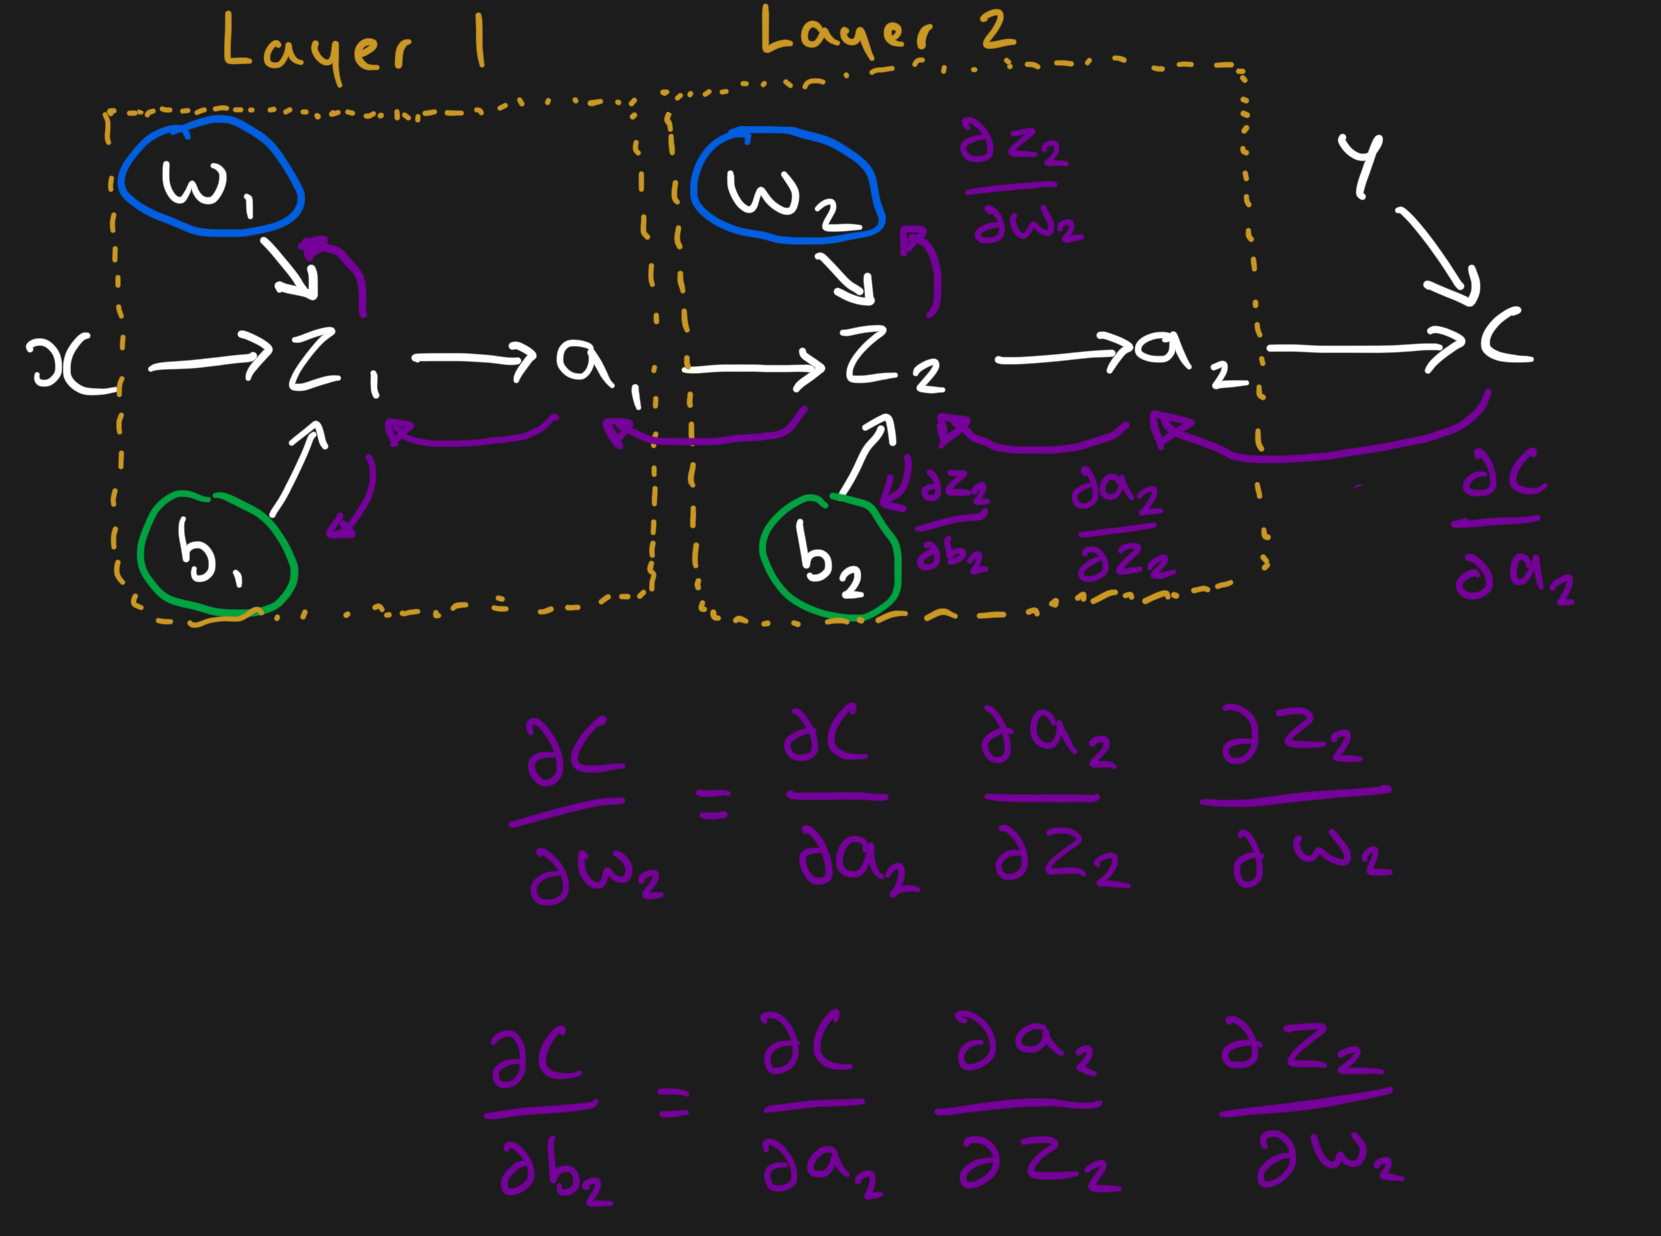 Layer 1
Layer 2
w₁
w₂
∂z₂/∂w₂
y
x → z₁ → a₁ → z₂ → a₂ → C
b₁
b₂
∂z₂/∂b₂
∂a₂/∂z₂
∂C/∂a₂
∂C/∂w₂ = ∂C/∂a₂ ∂a₂/∂z₂ ∂z₂/∂w₂
∂C/∂b₂ = ∂C/∂a₂ ∂a₂/∂z₂ ∂z₂/∂w₂